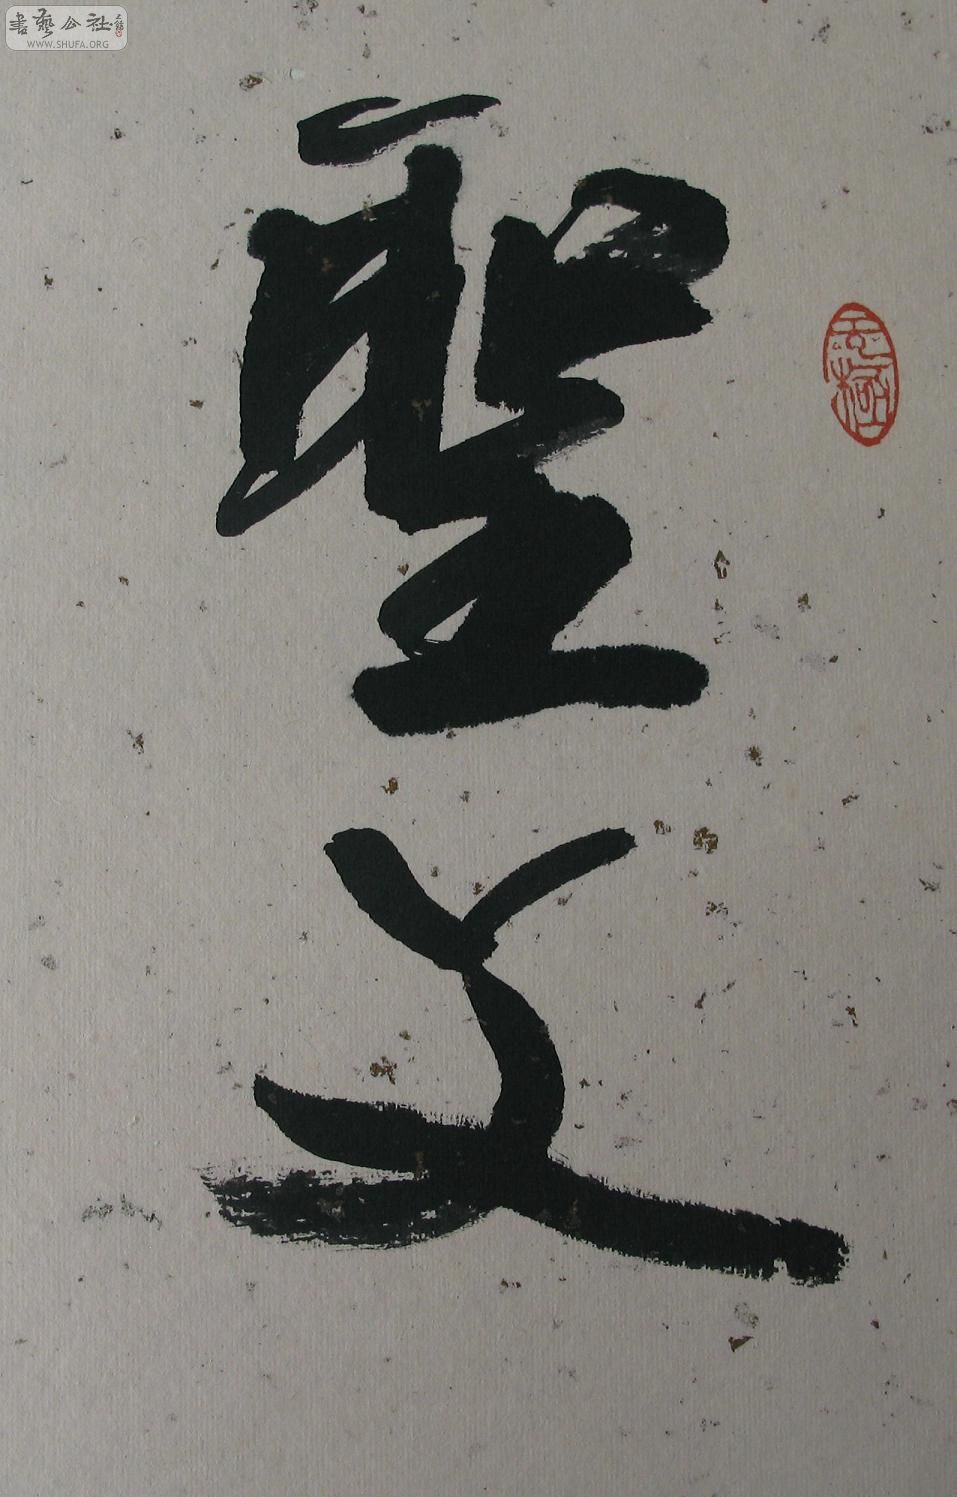 書藝公社
WWW.SHUFA.ORG
聖父